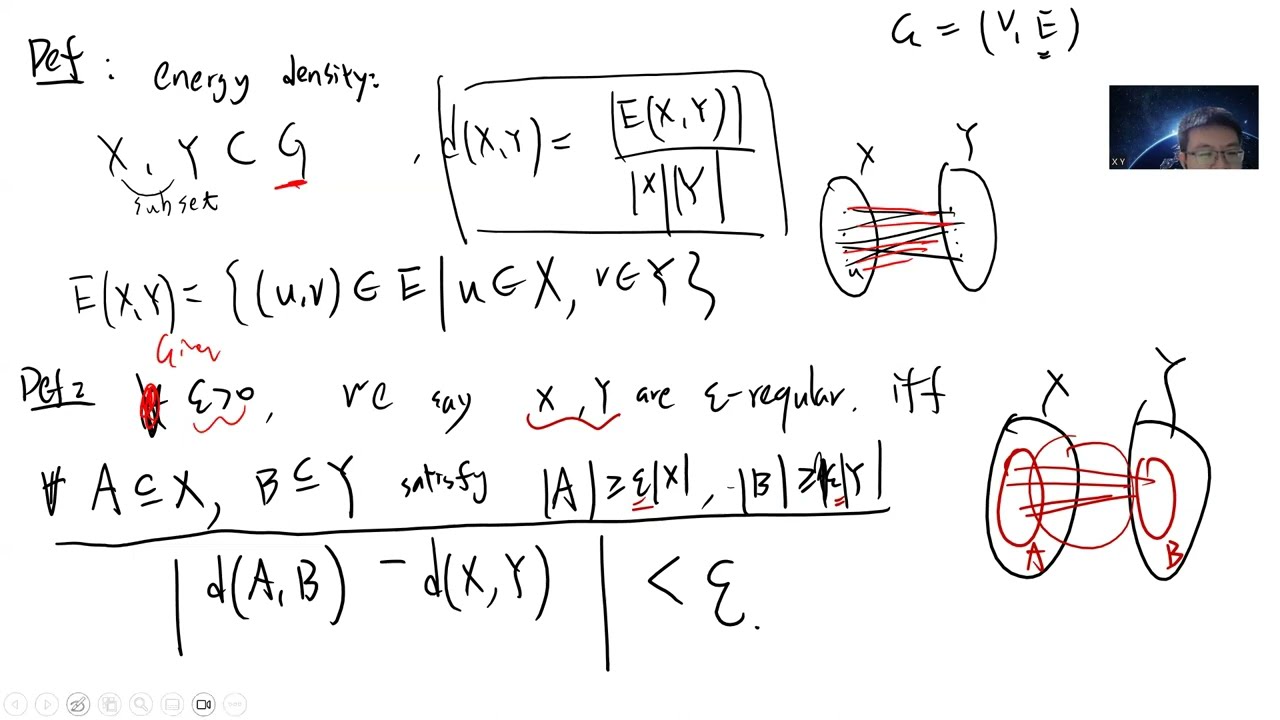 G = (V, E)
Def : energy density:
X, Y ⊂ G , d(X,Y) = |E(X,Y)| / |X||Y|
subset
X Y
u
E(X,Y) = {(u,v) ∈ E | u ∈ X, v ∈ Y}
Given
Def 2 ε>0, we say X, Y are ε-regular. iff
∀ A ⊆ X, B ⊆ Y satisfy |A| ≥ ε|X|, |B| ≥ ε|Y|
| d(A,B) - d(X,Y) | < ε.
X Y
A B
X Y